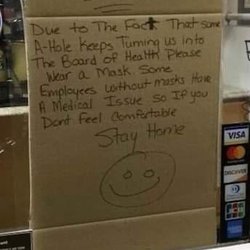 Due to The Fact That some
A-Hole Keeps Turning us into
The Board of Health Please
Wear a Mask Some
Employees without masks Have
A Medical Issue So If you
Dont Feel Comfortable
Stay Home
VISA
DISCOVER